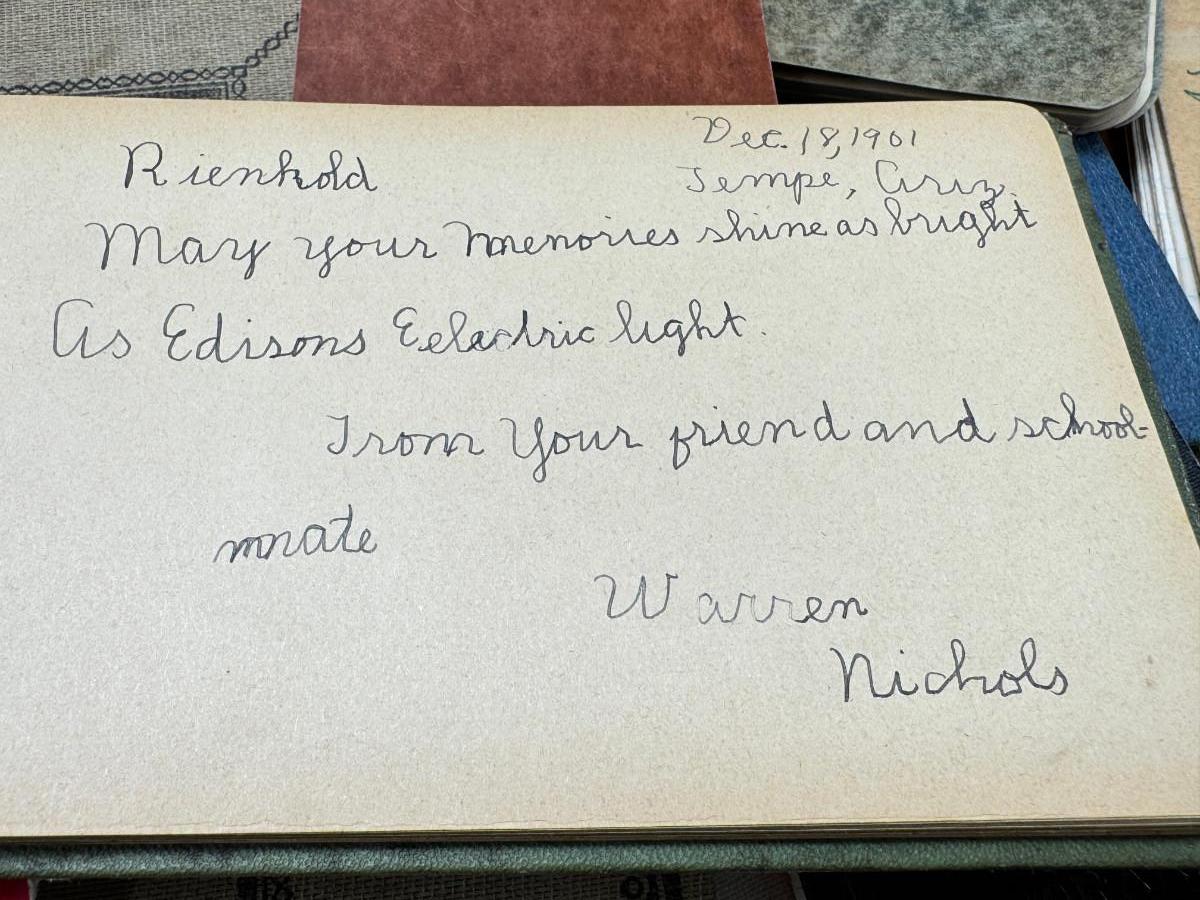 Dec. 18, 1901
Rienhold
Tempe, Ariz.
May your memories shine as bright
As Edisons Eelectric light.
From Your friend and school-
mate
Warren
Nichols